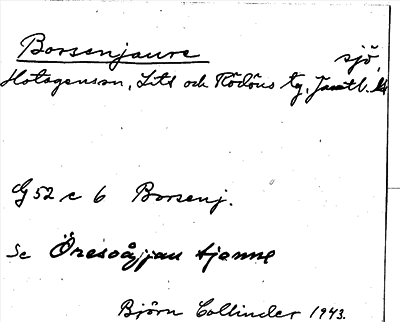 Borsenjaure sjö,
Hotagens sn, Lits och Rödöns tg, Jämtl. län
G 52 c 6 Borsenj.
Se Öresvåjjan tjenne
Björn Collinder 1943.